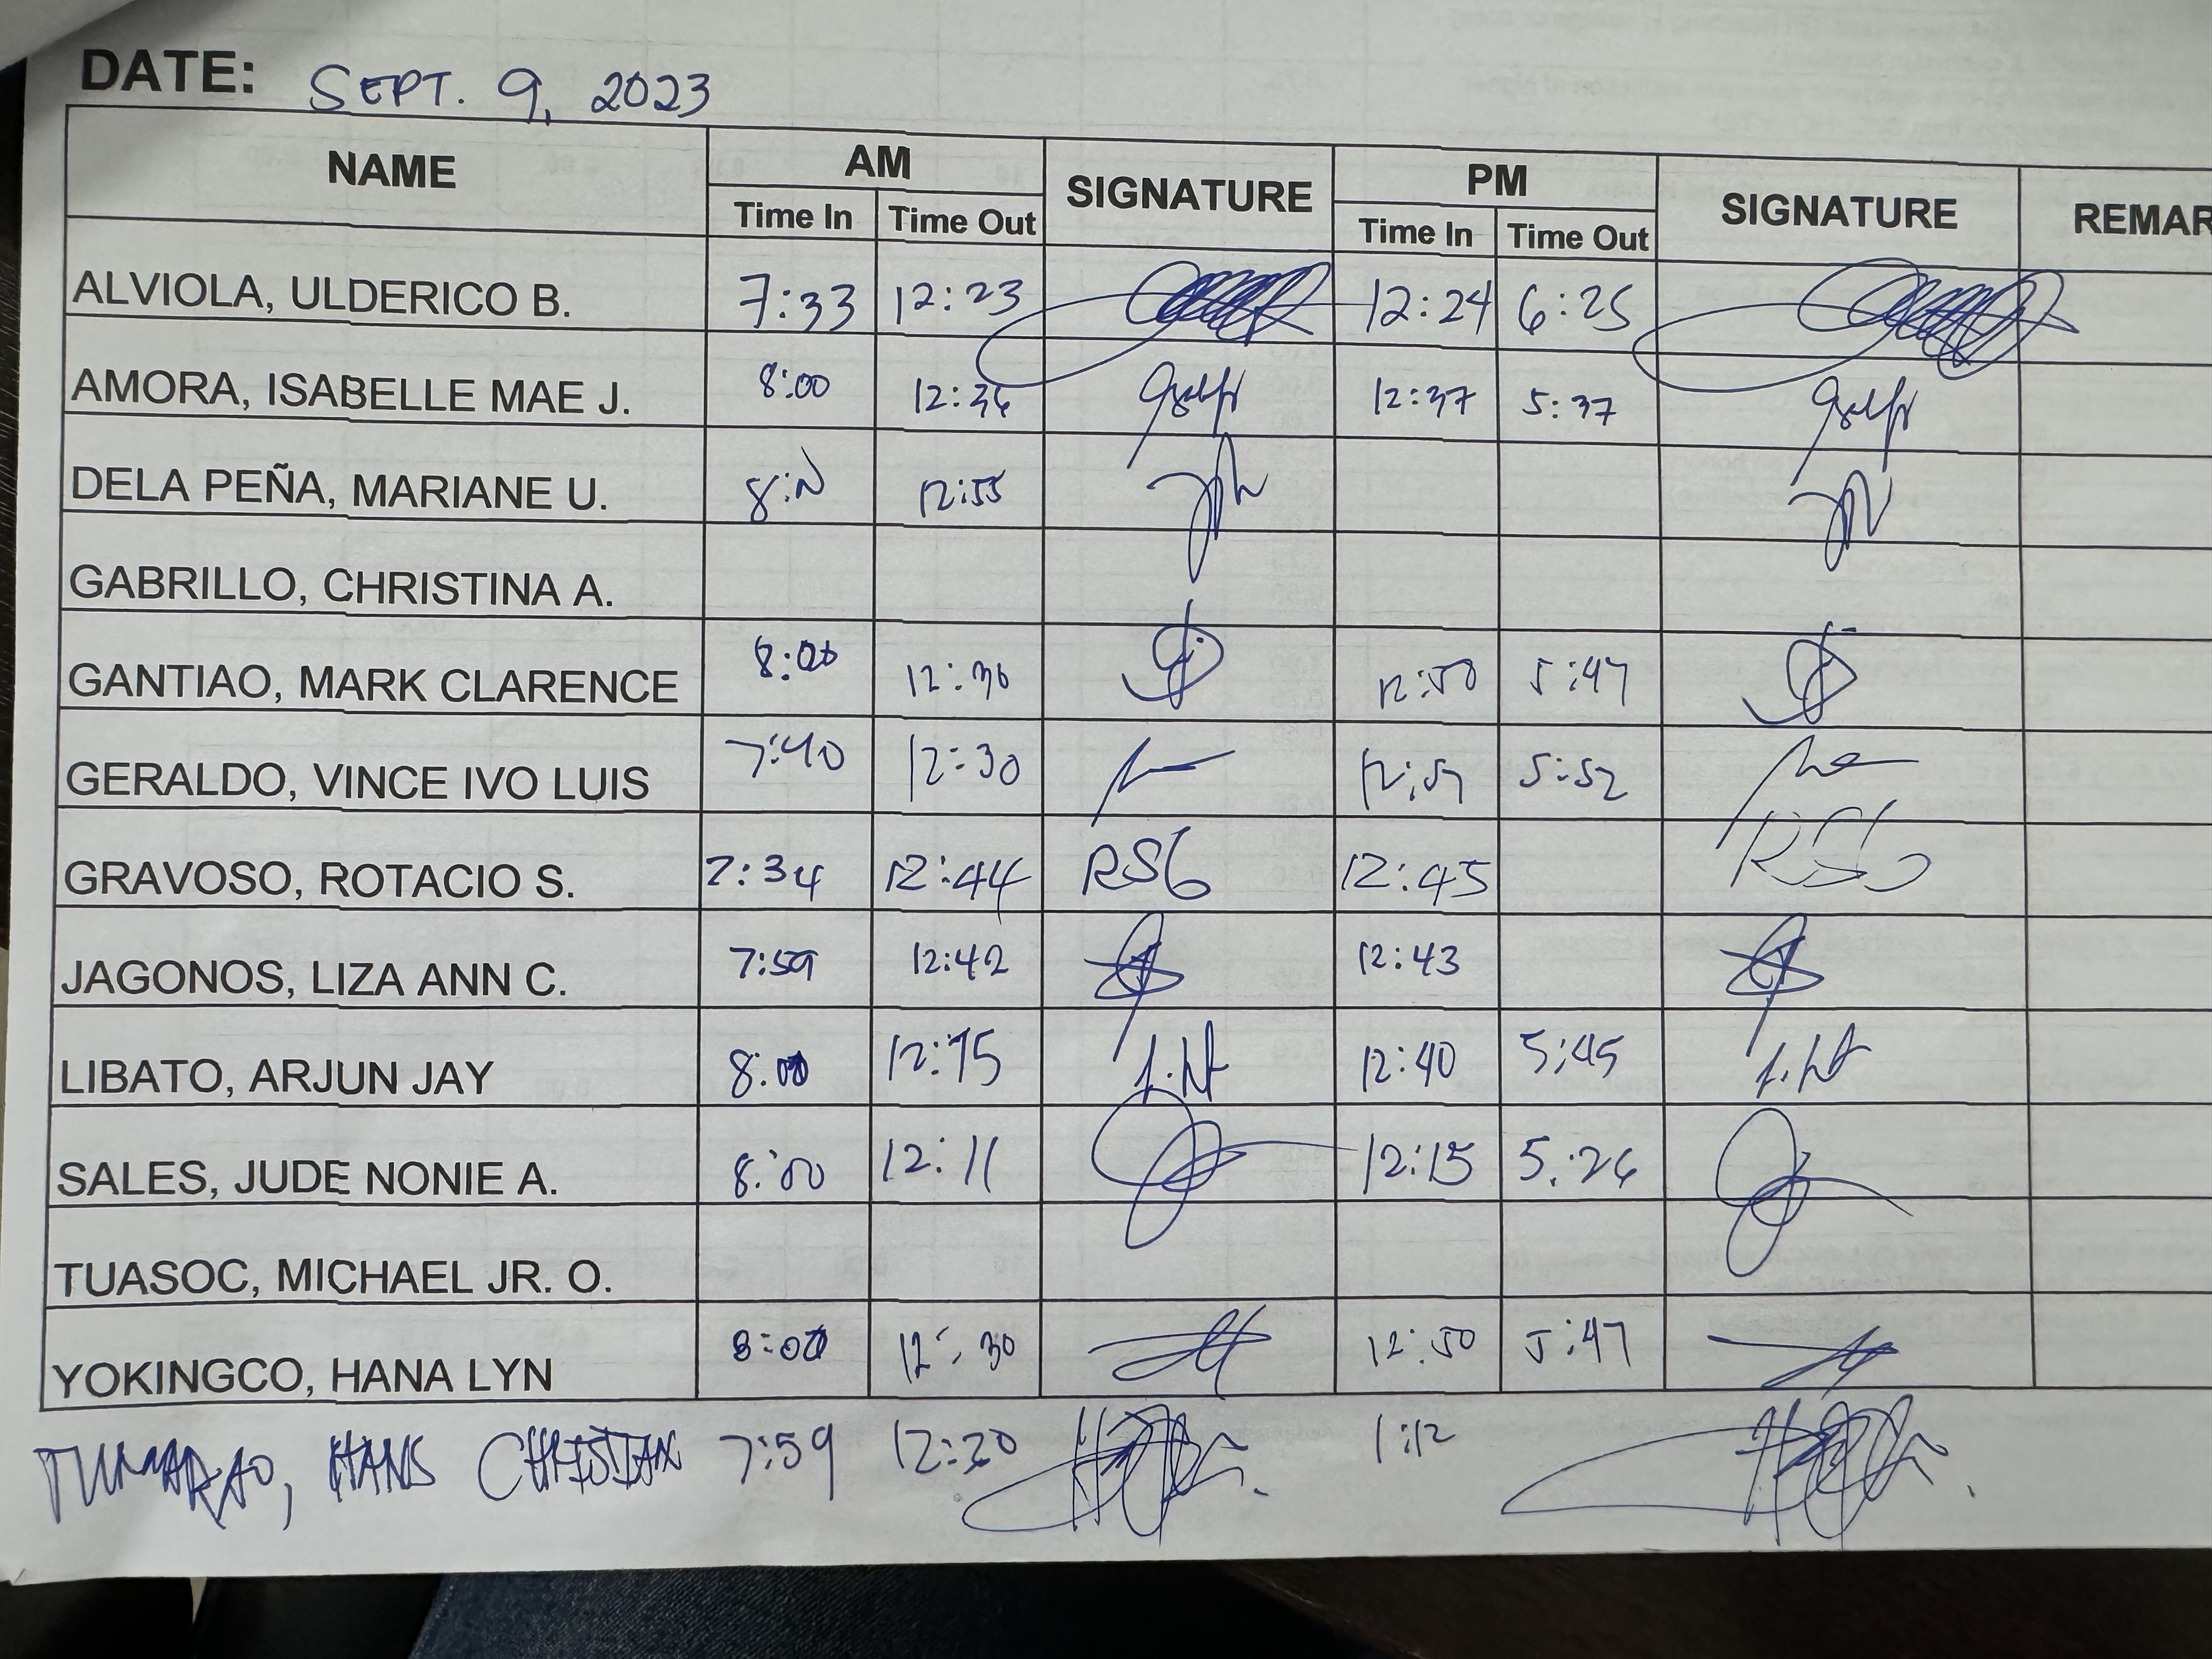 DATE: SEPT. 9, 2023
NAME AM SIGNATURE PM SIGNATURE REMAR
Time In Time Out Time In Time Out
ALVIOLA, ULDERICO B. 7:33 12:23 12:24 6:25
AMORA, ISABELLE MAE J. 8:00 12:36 12:37 5:37
DELA PEÑA, MARIANE U. 12:55
GABRILLO, CHRISTINA A.
GANTIAO, MARK CLARENCE 8:00 12:30 12:50 5:47
GERALDO, VINCE IVO LUIS 7:40 12:30 12:51 5:52
GRAVOSO, ROTACIO S. 7:34 12:44 RSG 12:45 RSG
JAGONOS, LIZA ANN C. 7:59 12:42 12:43
LIBATO, ARJUN JAY 8:00 12:15 12:40 5:45
SALES, JUDE NONIE A. 8:00 12:11 12:15 5:26
TUASOC, MICHAEL JR. O.
YOKINGCO, HANA LYN 8:00 12:30 12:50 5:47
TUMARAO, HANS CHRISTIAN 7:59 12:30 1:12